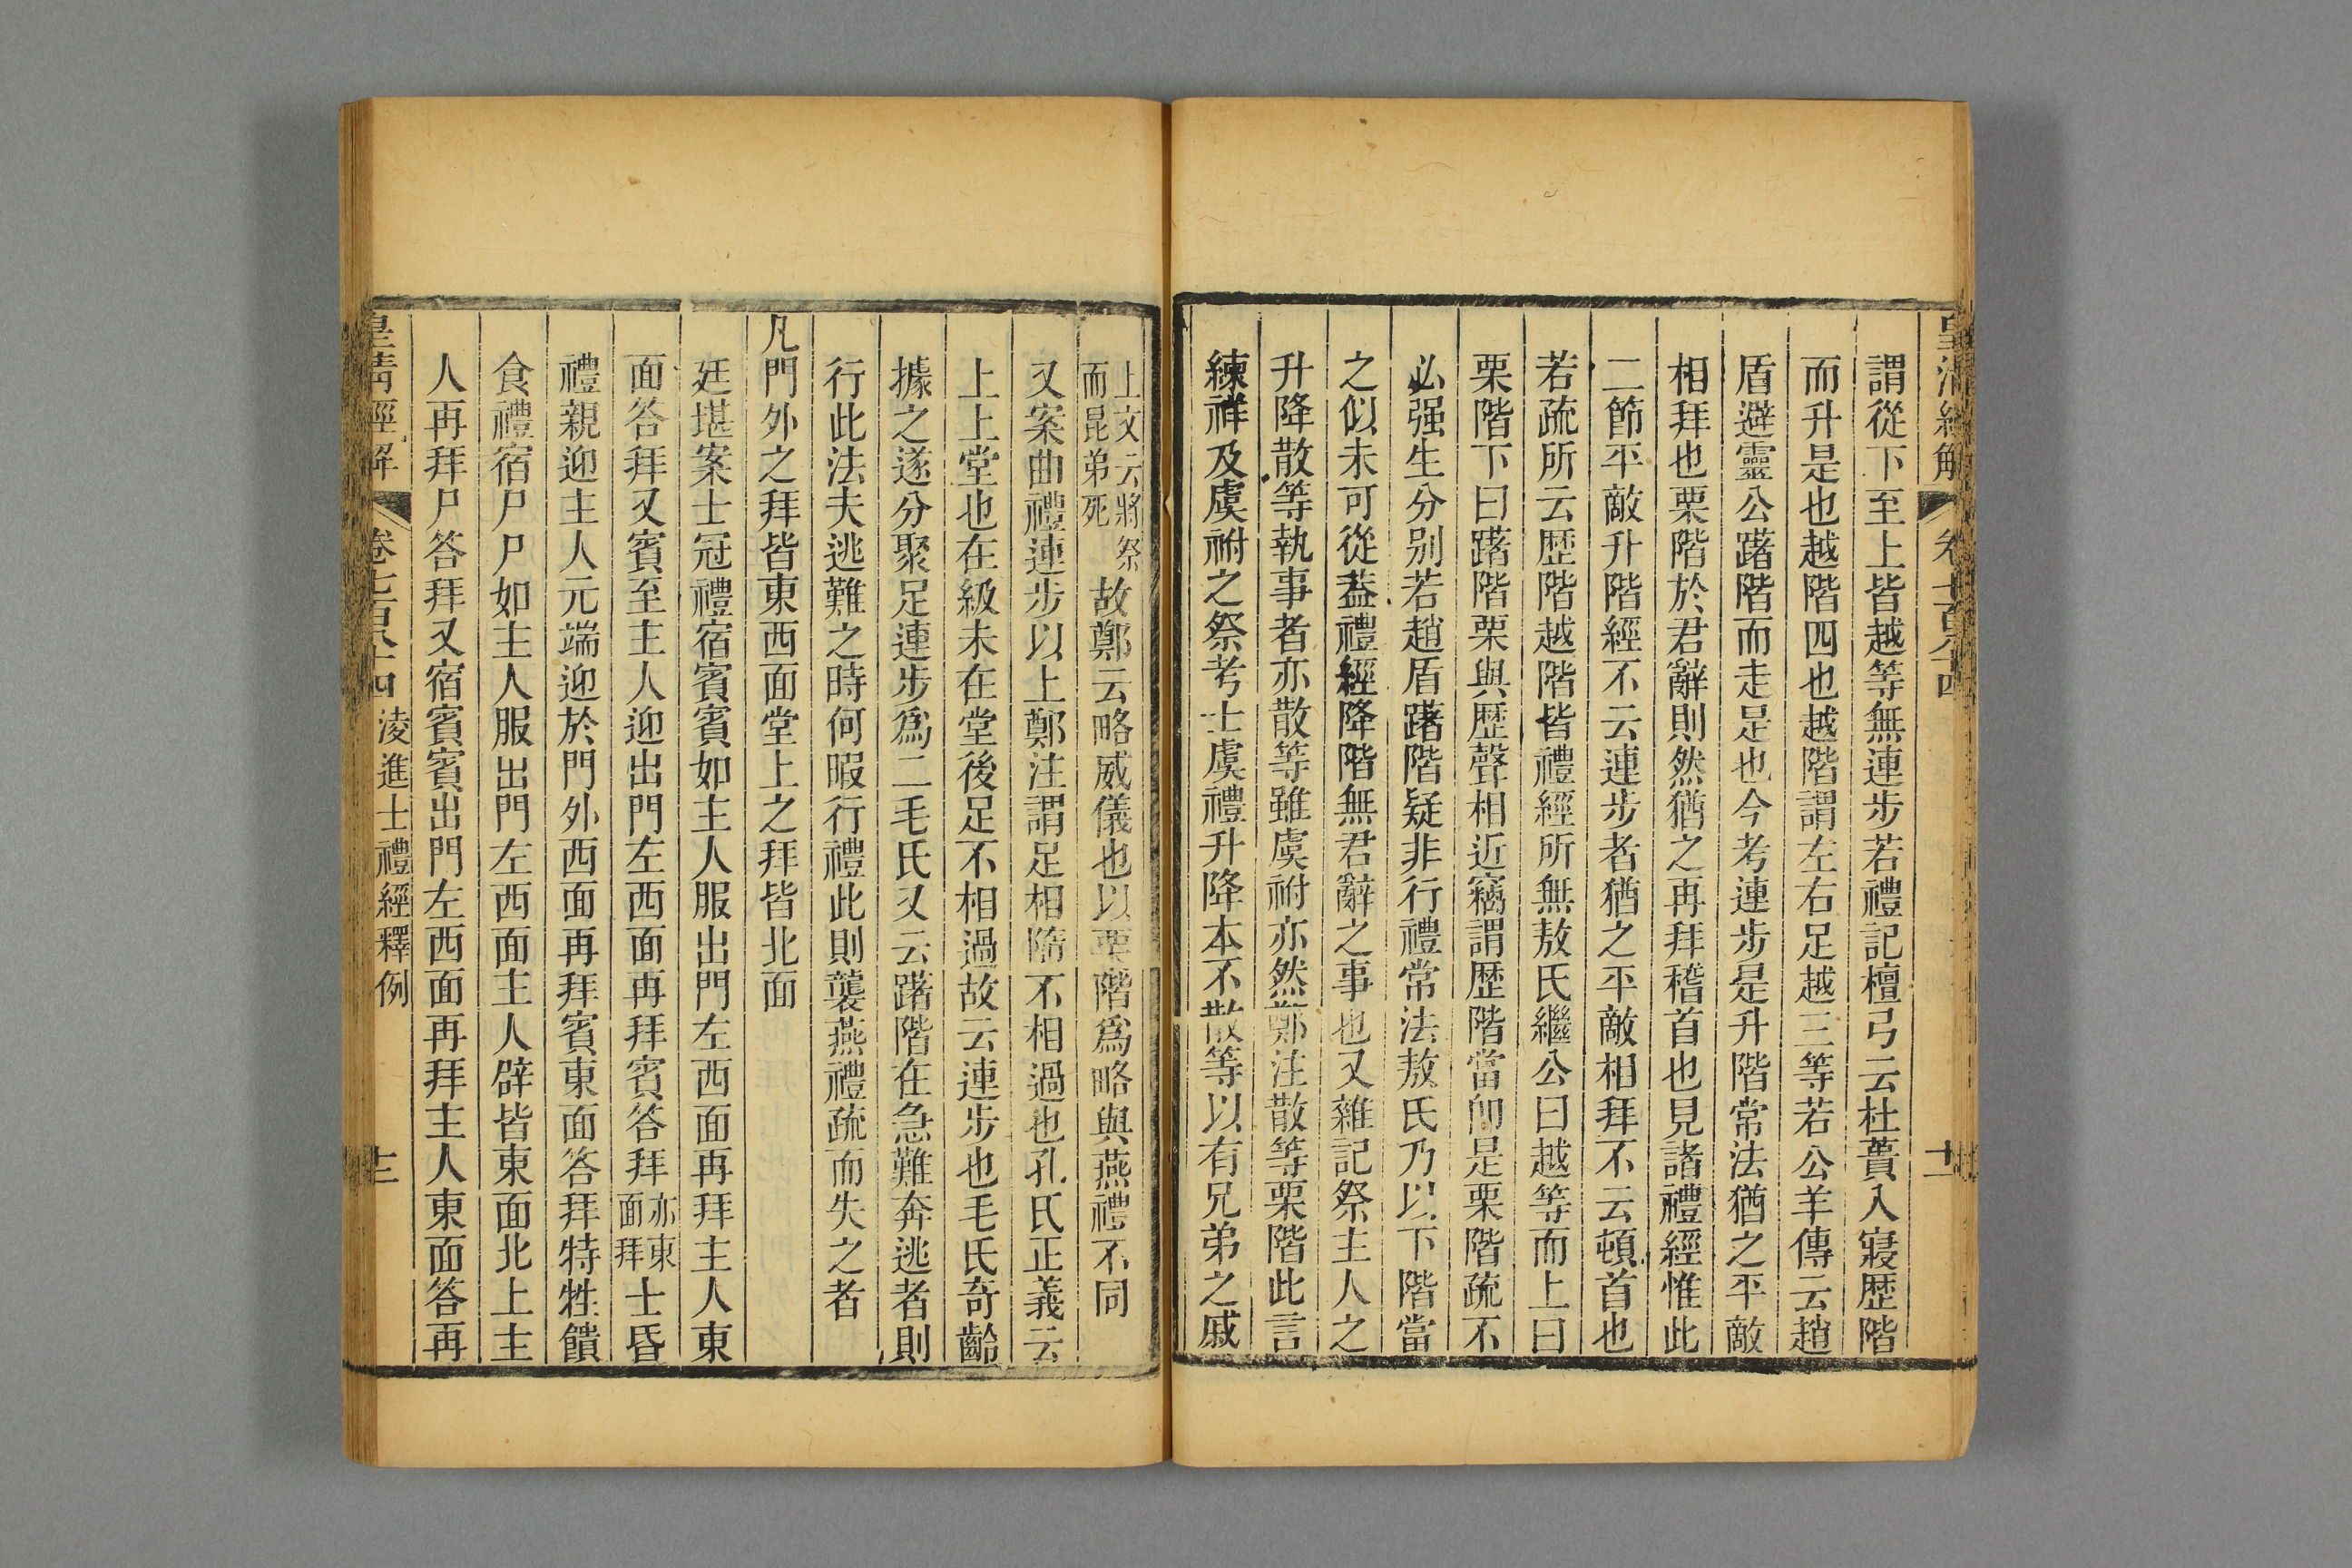 皇清經解 卷七百八十四 十二
謂從下至上皆越等無連步若禮記檀弓云杜蕢入寢歷階
而升是也越階四也越階謂左右足越三等若公羊傳云趙
盾避靈公躇階而走是也今考連步是升階常法猶之平敵
相拜也栗階於君辭則然猶之再拜稽首也見諸禮經惟此
二節平敵升階經不云連步者猶之平敵相拜不云頓首也
若疏所云歷階越階皆禮經所無敖氏繼公曰越等而上曰
栗階下曰躇階栗與歷聲相近竊謂歷階當卽是栗階疏不
必强生分别若趙盾躇階疑非行禮常法敖氏乃以下階當
之似未可從葢禮經降階無君辭之事也又雜記祭主人之
升降散等執事者亦散等雖虞祔亦然鄭注散等栗階此言
練祥及虞祔之祭考士虞禮升降本不散等以有兄弟之戚
上文云將祭
而昆弟死
故鄭云略威儀也以栗階爲略與燕禮不同
又案曲禮連步以上鄭注謂足相隨不相過也孔氏正義云
上上堂也在級未在堂後足不相過故云連步也毛氏奇齡
據之遂分聚足連步爲二毛氏又云躇階在急難奔逃者則
行此法夫逃難之時何暇行禮此則襲燕禮疏而失之者
凡門外之拜皆東西面堂上之拜皆北面
廷堪案士冠禮宿賓賓如主人服出門左西面再拜主人東
面答拜又賓至主人迎出門左西面再拜賓答拜
亦東
面拜
士昏
禮親迎主人元端迎於門外西面再拜賓東面答拜特牲饋
食禮宿尸尸如主人服出門左西面主人辟皆東面北上主
人再拜尸答拜又宿賓賓出門左西面再拜主人東面答再
皇清經解 卷七百八十四 淩進士禮經釋例 十三